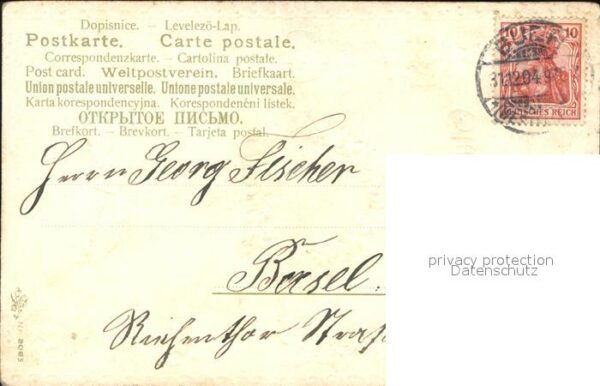 Dopisnice. — Levelező-Lap.
Postkarte. Carte postale.
Correspondenzkarte. — Cartolina postale.
Post card. Weltpostverein. Briefkaart.
Union postale universelle. Unione postale universale.
Karta korespondencyjna. Korespondenční lístek.
ОТКРЫТОЕ ПИСЬМО.
Brefkort. — Brevkort. — Tarjeta postal.
10 10
31.12.04.9
REICH
Herrn Georg Fischer
privacy protection
Datenschutz
Basel.
Riehenthor Straß